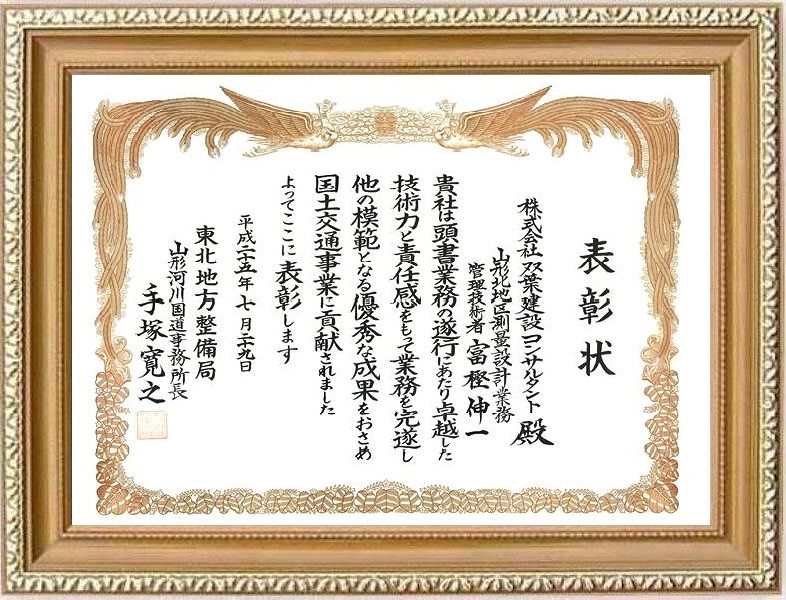 表彰状
株式会社 双葉建設コンサルタント 殿
山形北地区測量設計業務
管理技術者 富樫 伸一
貴社は頭書業務の遂行にあたり卓越した
技術力と責任感をもって業務を完遂し
他の模範となる優秀な成果をおさめ
国土交通事業に貢献されました
よってここに表彰します
平成二十五年 七 月二十九日
東北地方整備局
山形河川国道事務所長
手塚寛之